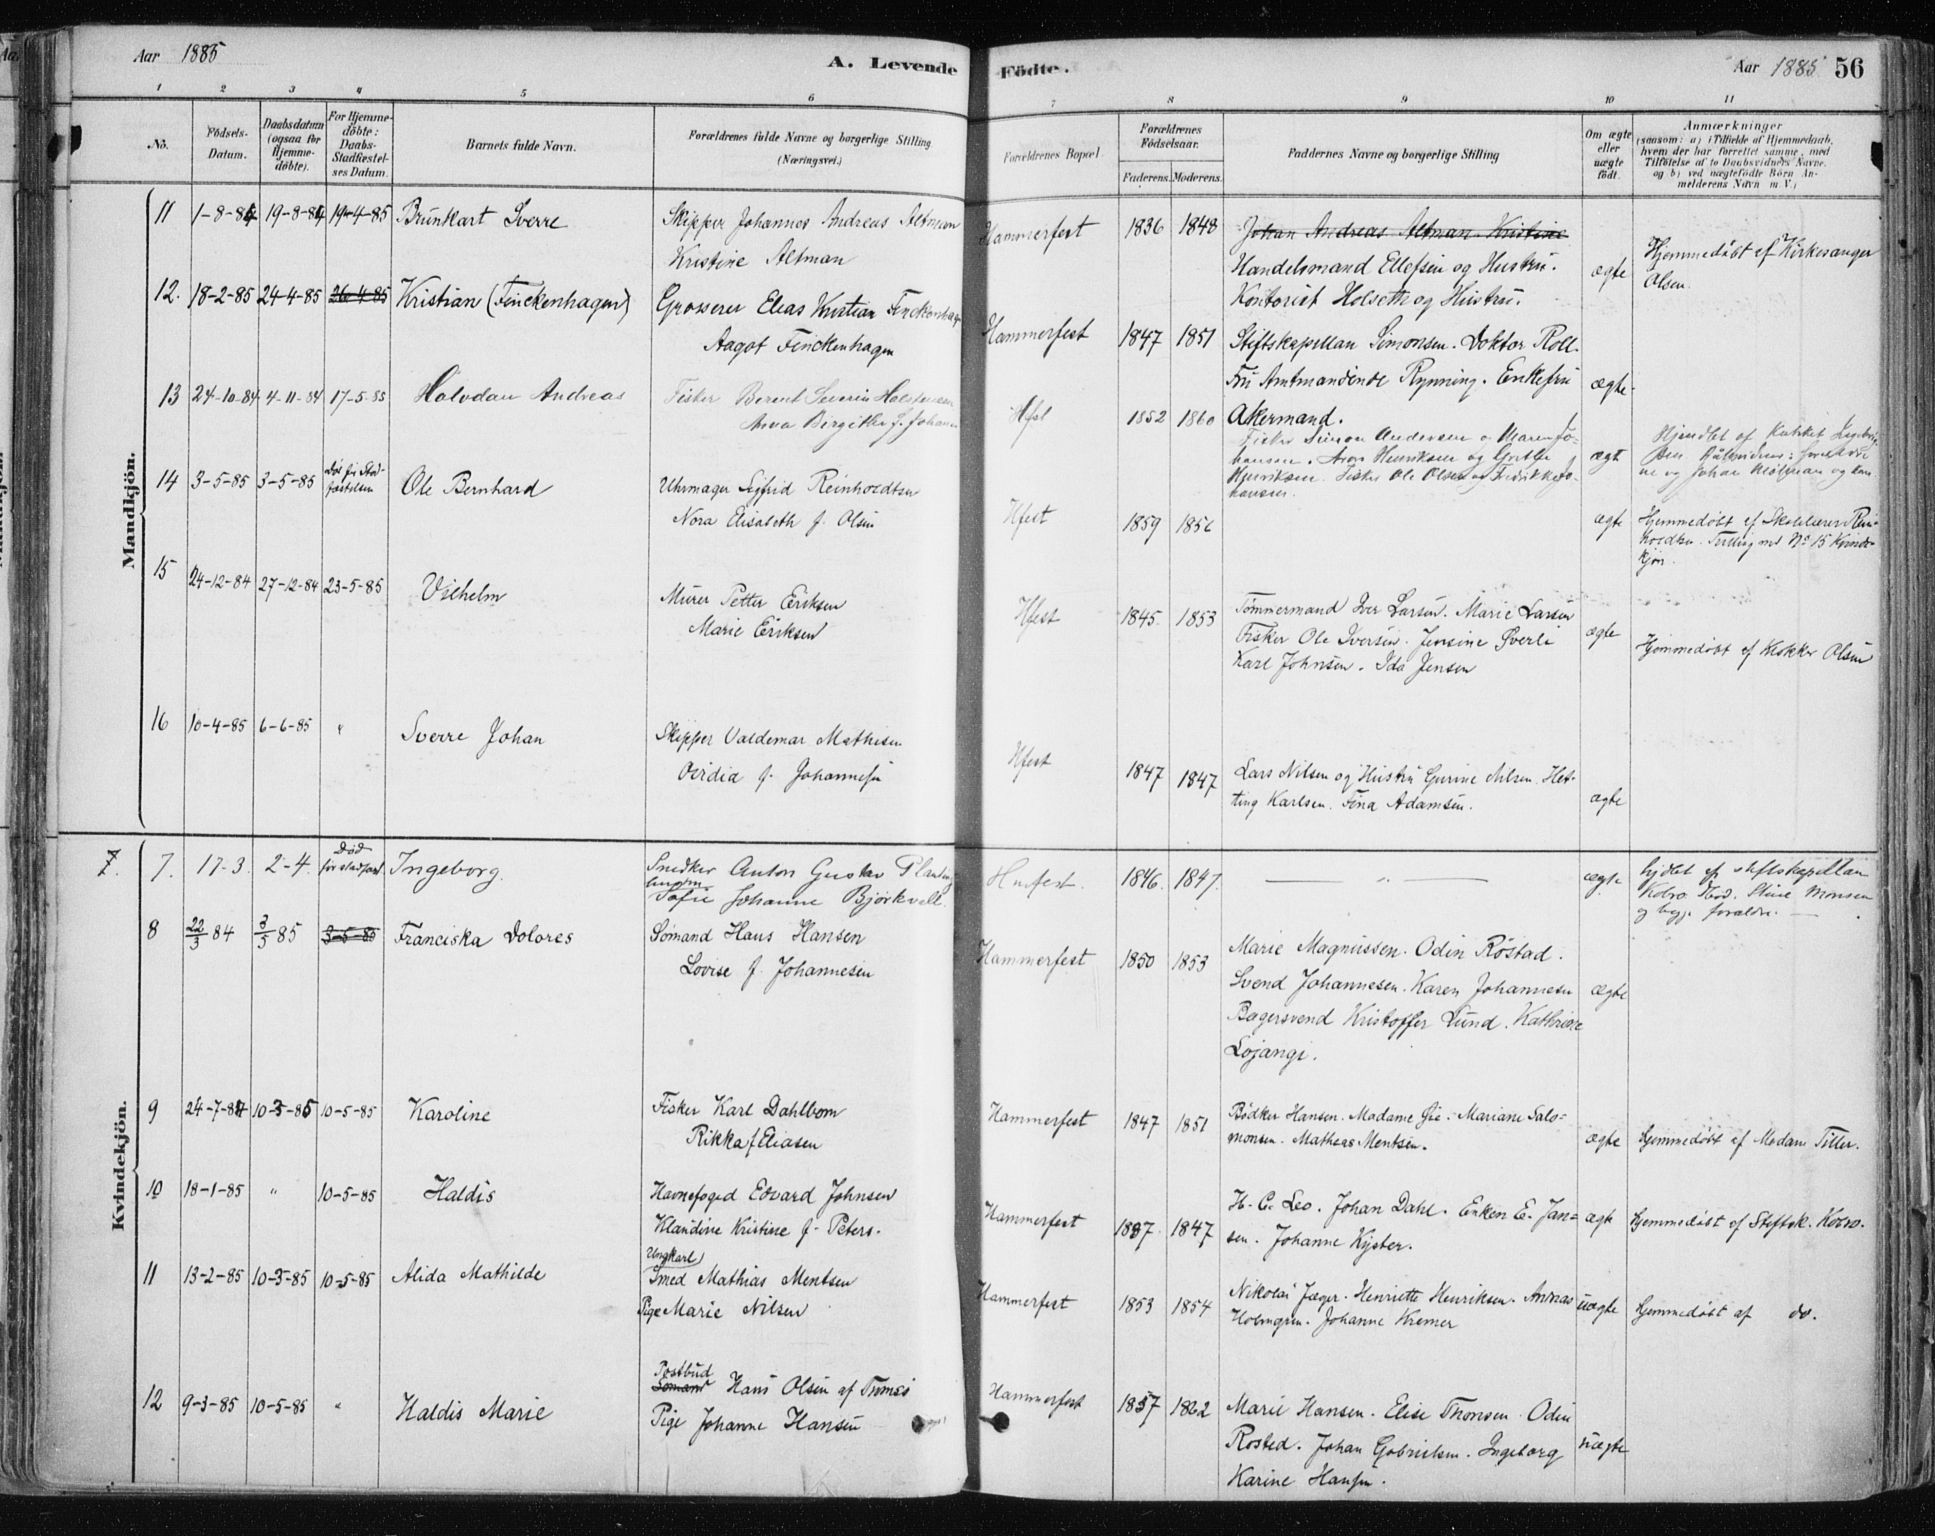 Aar 1885
A. Levende Födte.
Aar 1885 56
1 2 3 4 5 6 7 8 9 10 11
No.
Födsels-Datum.
Daabsdatum (ogsaa for Hjemme-döbte).
For Hjemme-döbte: Daabs-Stadfæstel-ses Datum.
Barnets fulde Navn.
Forældrenes fulde Navne og borgerlige Stilling (Næringsvei.)
Forældrenes Bopæl.
Forældrenes Födselsaar.
Faderens. Moderens.
Faddernes Navne og borgerlige Stilling
Om ægte eller uægte födt.
Anmærkninger
(saasom: a) i Tilfælde af Hjemmedaab,
hvem der har forrettet samme, med
Tilföielse af to Daabsvidners Navne.
og b) ved uægtefödte Börn An-
melderens Navn m. V.)
Mandkjön.
11 1-8-84 19-8-84 19-4-85 Brunkart Sverre
Skipper Johannes Andreas Altman
Kristine Altman
Hammerfest 1836 1848
Johan Andreas Altman Kristine
Handelsmand Ellefsen og Hustru.
Kontorist Holseth og Hustru.
ægte
Hjemmedöbt af Kirkesanger
Olsen.
12. 18-2-85 24-4-85 26-4-85 Kristian (Finckenhagen)
Grosserer Elias Kristian Finckenhagen
Aagot Finckenhagen
Hammerfest 1847 1851
Stiftskapellan Simonsen. Doktor Roll.
Fru Amtmandinde Rynning. Enkefru
Akermand.
ægte.
13 24-10-84 4-11-84 17-5-85 Halvdan Andreas
Fisker Berent Severin Holstensen
Anna Birgitte f. Johann
Hfst 1852 1860
Fisker Simon Andersen o Maren Jo-
hansen. Aron Henriksen og Grethe
Henriksen. Fisker Ole Olsen og Fredrikke Jo-
hansen.
ægt
14 3-5-85 3-5-85 Död før Stad-
fæstelsen
Ole Bernhard
Uhrmager Sigfrid Reinholdtsen
Nora Elisabeth f. Olsen
Hfest 1859 1856
ægte
Hjemmedöbt af Skolelærer Rein-
holdtsen. Tvilling med No 15 Kvinde-
kjön.
15 24-12-84 27-12-84 23-5-85 Vilhelm
Murer Petter Eriksen
Marie Eriksen
Hfest 1845. 1853
Tømmermand Iver Larsen. Marie Larsen
Fisker Ole Iversen. Jensine Sverli
Karl Johnsen. Ida Jensen
ægte
Hjemmedöbt af Klokker Olsen
16 10-4-85 6-6-85 " Sverre Johan
Skipper Valdemar Mathisen
Ovidia f. Johannesen
Hfest 1847 1847
Lars Nilsen og Hustru Gurine Nilsen. Het-
ting Karlsen. Fina Adamsen.
ægte
Kvindekjön.
7. 7. 17-3. 2-4. Död
før stadfæst. Ingeborg.
Snedker Anton Gustav
Sofie Johanne Björkvall.
Hmfest. 1846. 1847.
— " —
ægte.
hjdbt af stiftskapellan
Kolvo. Stine Monsen
og begge forældre.
8 22/3 84 3/5 85 3-5-85 Franciska Dolores
Sömand Hans Hansen
Lovise f. Johannesen
Hammerfest 1850 1853
Marie Magnussen. Odin Röstad.
Svend Johannesen. Karen Johannesen
Bagersvend Kristoffer Lund. Kathrine
Lojangi.
ægte
9 24-7-84 10-3-85 10-5-85 Karoline
Fisker Karl Dahlbom
Rikka f. Eliasen
Hammerfest 1847 1851
Bödker Hansen. Madame Gie. Mariane Salo-
monsen. Mathias Mentsen.
ægte
Hjemmedöbt af Madam Titter.
10 18-1-85 " 10-5-85 Haldis
Havnefoged Edvard Johnsen
Klaudine Kristine f. Peters.
Hammerfest 1837. 1847
H. C. Leo. Johan Dahl. Enken E. Jan-
sen. Johanne Kyster.
ægte
Hjemmedöbt af Stiftsk. Kolvo.
11 13-2-85 10-3-85 10-5-85 Alida Mathilde
Ungkarl
Smed Mathias Mentsen
Pige Marie Nilsen
Hammerfest 1853 1854
Nikolai Jæger. Henriette Henriksen. Annas
Holmgren. Johanne Kremer
uægte
Hjemmedöbt af do.
12 9-3-85 10-5-85 " Haldis Marie
Postbud
Sömand Hans Olsen af Tromsö
Pige Johanne Hansen
Hammerfest 1857 1862
Marie Hansen. Elise Thomsen. Odin
Rosted. Johan Gabrielsen. Ingeborg
Karine Hansen.
uægte